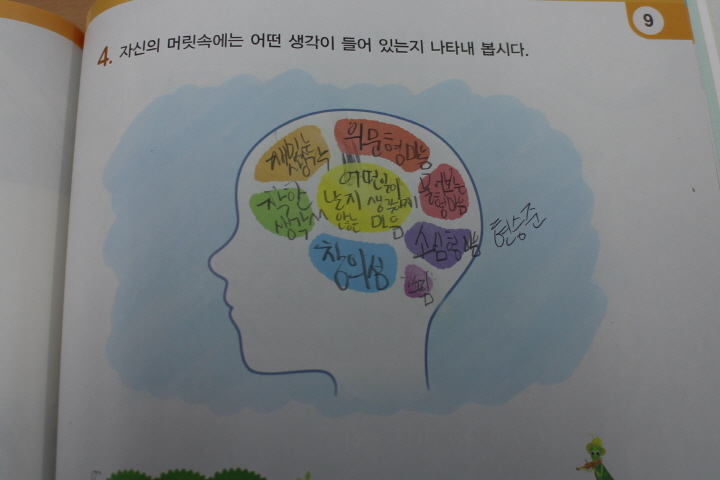 9
4. 자신의 머릿속에는 어떤 생각이 들어 있는지 나타내 봅시다.
재밌는
생각
의문형마음
착한
생각
어떤일이
날지 생길지
않는 마음
물어보는
형마음
소심형마음
현승준
창의성